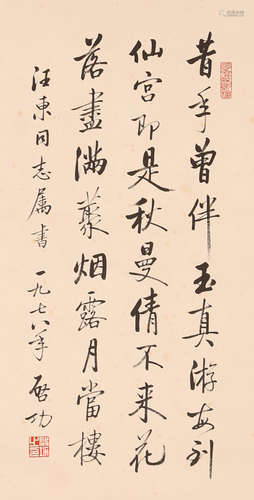 昔年曾伴玉真游每到
仙宫即是秋曼倩不来花
落盡满藂烟露月當樓
汪東同志属書 一九七八年 啓功